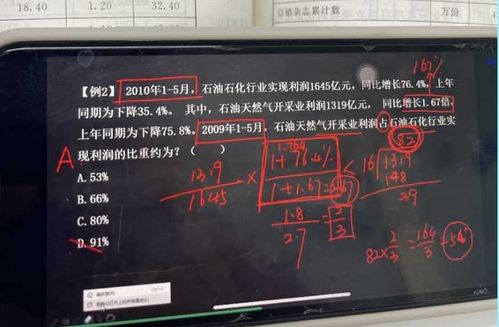 18.40 1.20 32.40
订销杂志累计数 万份
167%
【例2】2010年1-5月，石油石化行业实现利润1645亿元，同比增长76.4%，上年
同期为下降35.4%。 其中，石油天然气开采业利润1319亿元， 同比增长1.67倍，
上年同期为下降75.8%。2009年1-5月，石油天然气开采业利润占石油石化行业实
现利润的比重约为？（ ）
A
A.53%
B.66%
C.80%
D.91%
1319
1645
×
1.764
1+76.4%
1+1.67
1.8
2.7
=
2
3
82
16
1319
148
39
82×2/3=164/3=54